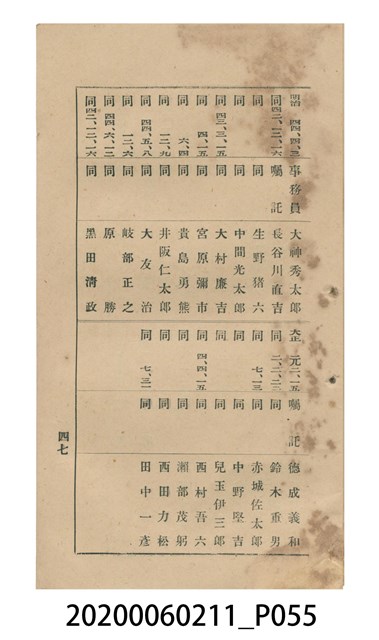 明治 四四、四、三 事務員 大神秀太郎
同 四三、一二、一六 囑託 長谷川直吉
同 同 生野猪六
同 同 中間光太郎
同 四三、三、一五 同 大村廉吉
同 四、一五 同 宮原彌市
同 六、四 同 貴島勇熊
同 一二、九 同 井阪仁太郎
同 四四、五、八 同 大友治
同 一二、六 同 岐部正之
同 四四、六、一二 同 原勝
同 四二、一二、一六 同 黑田淸政
大正 元、二、一五 囑託 德成義和
同 二、二、二 同 鈴木重男
同 七、一三 同 赤城佐太郎
同 同 中野堅吉
同 同 兒玉伊三郎
同 四、四、一五 同 西村吾六
同 同 瀬部茂躬
同 同 西田力松
同 七、三一 同 田中一彥
四七
20200060211_P055